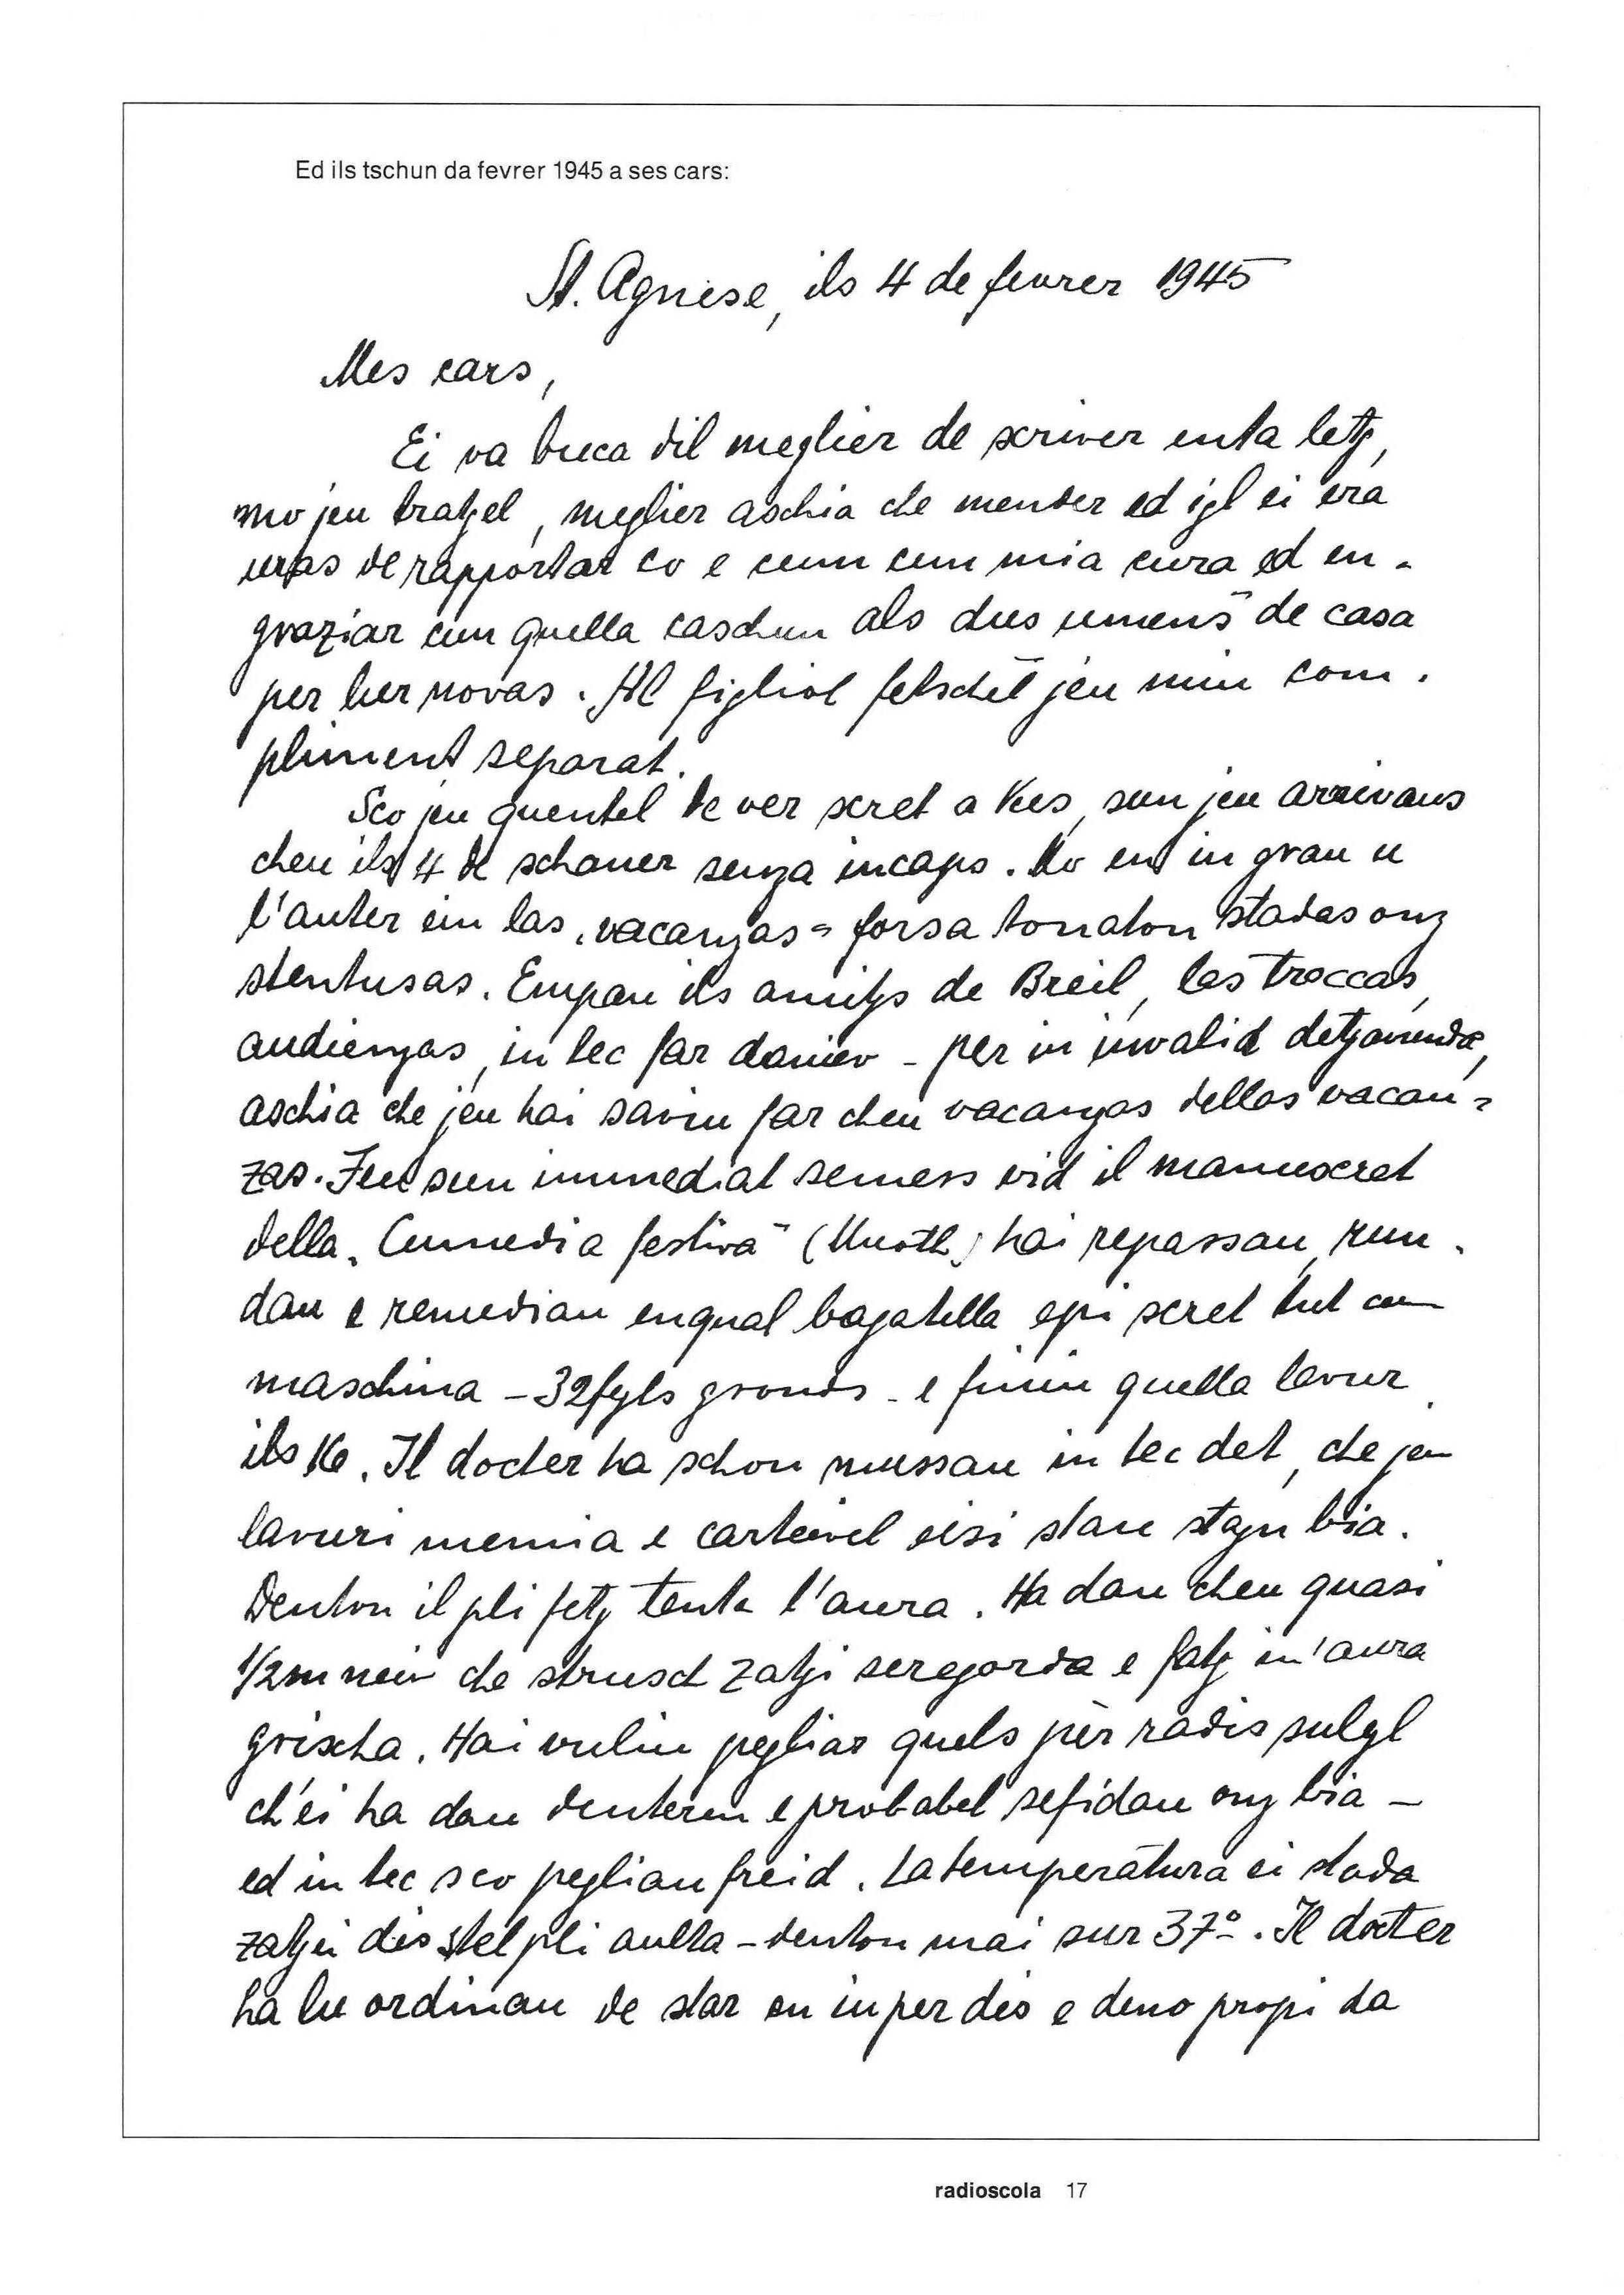 Ed ils tschun da fevrer 1945 a ses cars:
St. Agnese, ils 4 de fevrer 1945
Mes cars,
Ei va buca dil meglier de scriver enta letg,
mo jeu tratgel, meglier aschia che mender ed igl ei era
uras de rapportar co e cum cun mia cura ed en-
graziar cun quella caschun als dus umens de casa
per lur novas. Al figliol fetschel jeu miu com-
pliment separat.
Sco jeu quentel de ver scret a Vus, sun jeu arrivaus
cheu ils 4 de schaner senza incaps. Mo en in grau u
l'auter ein las „vacanzas" forsa tonaton stadas onz
stentusas. Empau ils amitgs de Breil, las troccas,
audienzas, in tec far daniev - per in invalid detgavunda,
aschia che jeu hai saviu far cheu vacanzas dellas vacan-
zas. Jeu sun immediat semess vid il manuscret
della „Cumedia festiva" (Muoth) hai repassau, run-
dau e remediau enqual bagatella epi scret tut cun
maschina - 32 fegls gronds - e finiu quella lavur
ils 16. Il docter ha schon mussau in tec det, che jeu
lavuri memia e carteivel eisi stau stagn bia.
Denton il pli fetg tenta l'aura. Ha dau cheu quasi
1/2 m neiv che strusch zatgi seregorda e fatg in'aura
grischa. Hai vuliu pegliar quels pèr radis sulegl
ch'ei ha dau denteren e probabel sefidau onz bia -
ed in tec sco pegliau freid. La temperatura ei stada
zatgei dis stel pli aulta - denton mai sur 37°. Il docter
ha lu ordinau de star en in per dis e deno propi da
radioscola 17